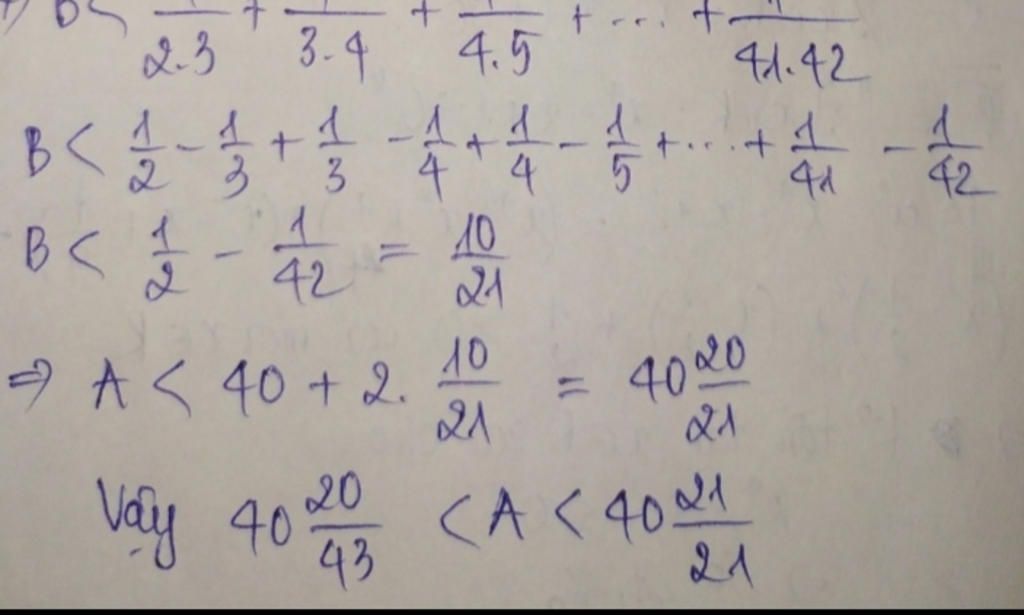 B < 1/2.3 + 1/3.4 + 1/4.5 + ... + 1/41.42
B < 1/2 - 1/3 + 1/3 - 1/4 + 1/4 - 1/5 + ... + 1/41 - 1/42
B < 1/2 - 1/42 = 10/21
⇒ A < 40 + 2. 10/21 = 40 20/21
Vậy 40 20/43 < A < 40 21/21